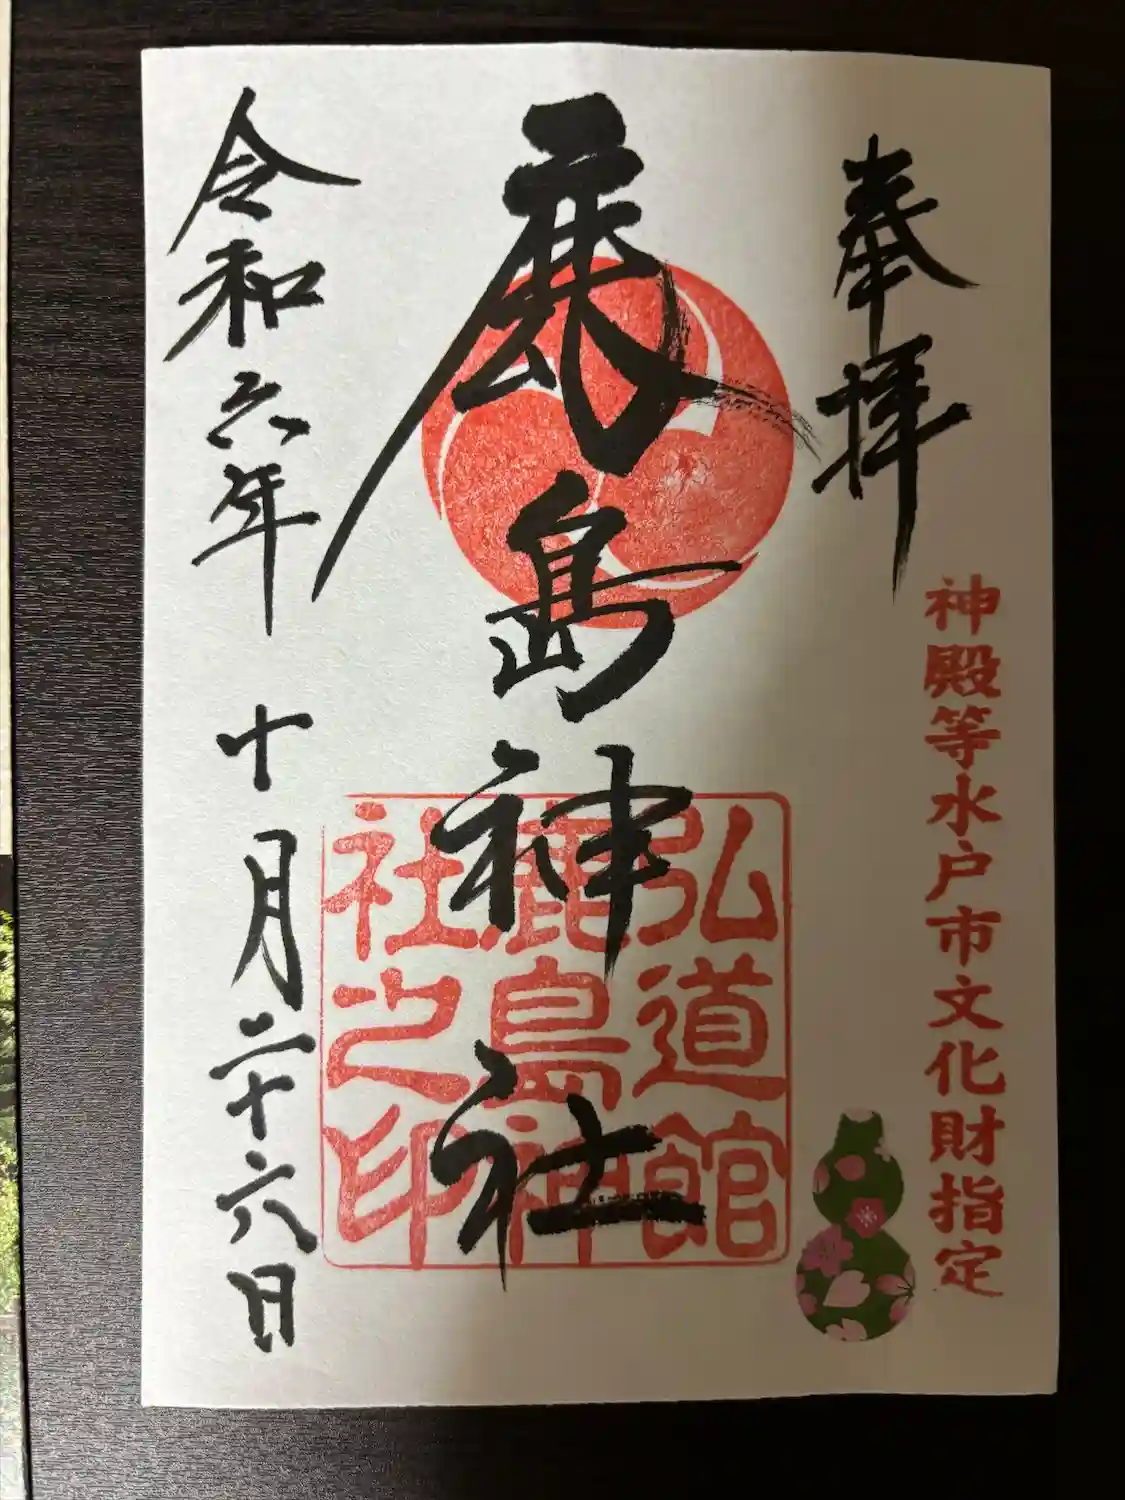 奉拝
神殿等水戸市文化財指定
鹿島神社
弘道館
鹿島神
社之印
令和六年 十月二十六日